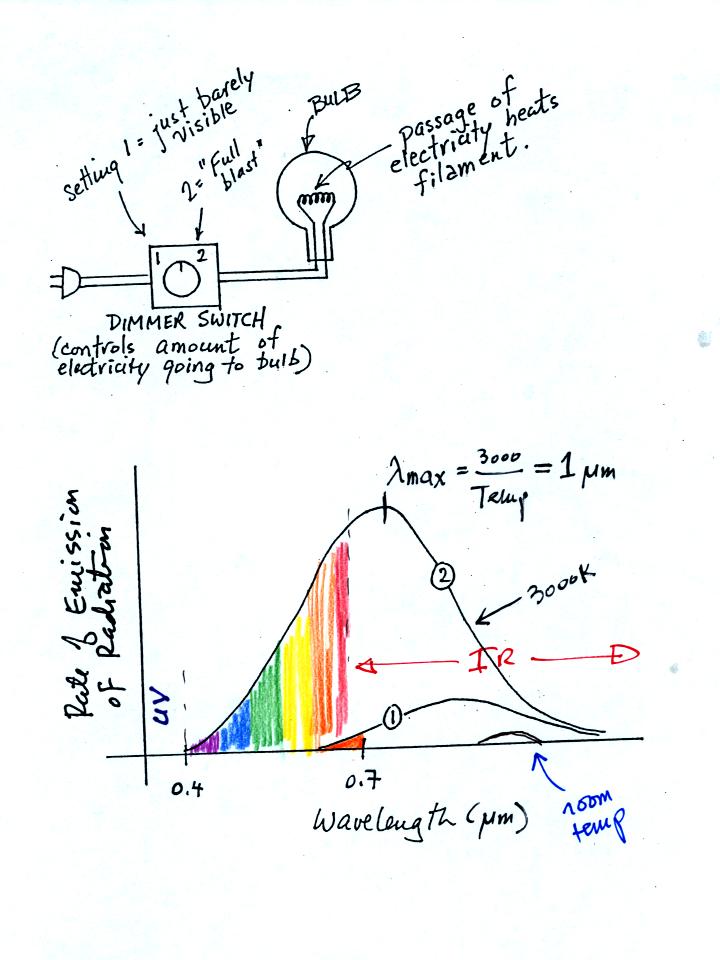 Setting 1 = just barely
visible
2 = "Full
blast"
BULB
passage of
electricity heats
filament.
1 2
DIMMER SWITCH
(controls amount of
electricity going to bulb)
λmax = 3000/Temp = 1 μm
Rate of Emission
of Radiation
2
3000K
IR
UV
1
0.4
0.7
Wavelength (μm)
room
temp